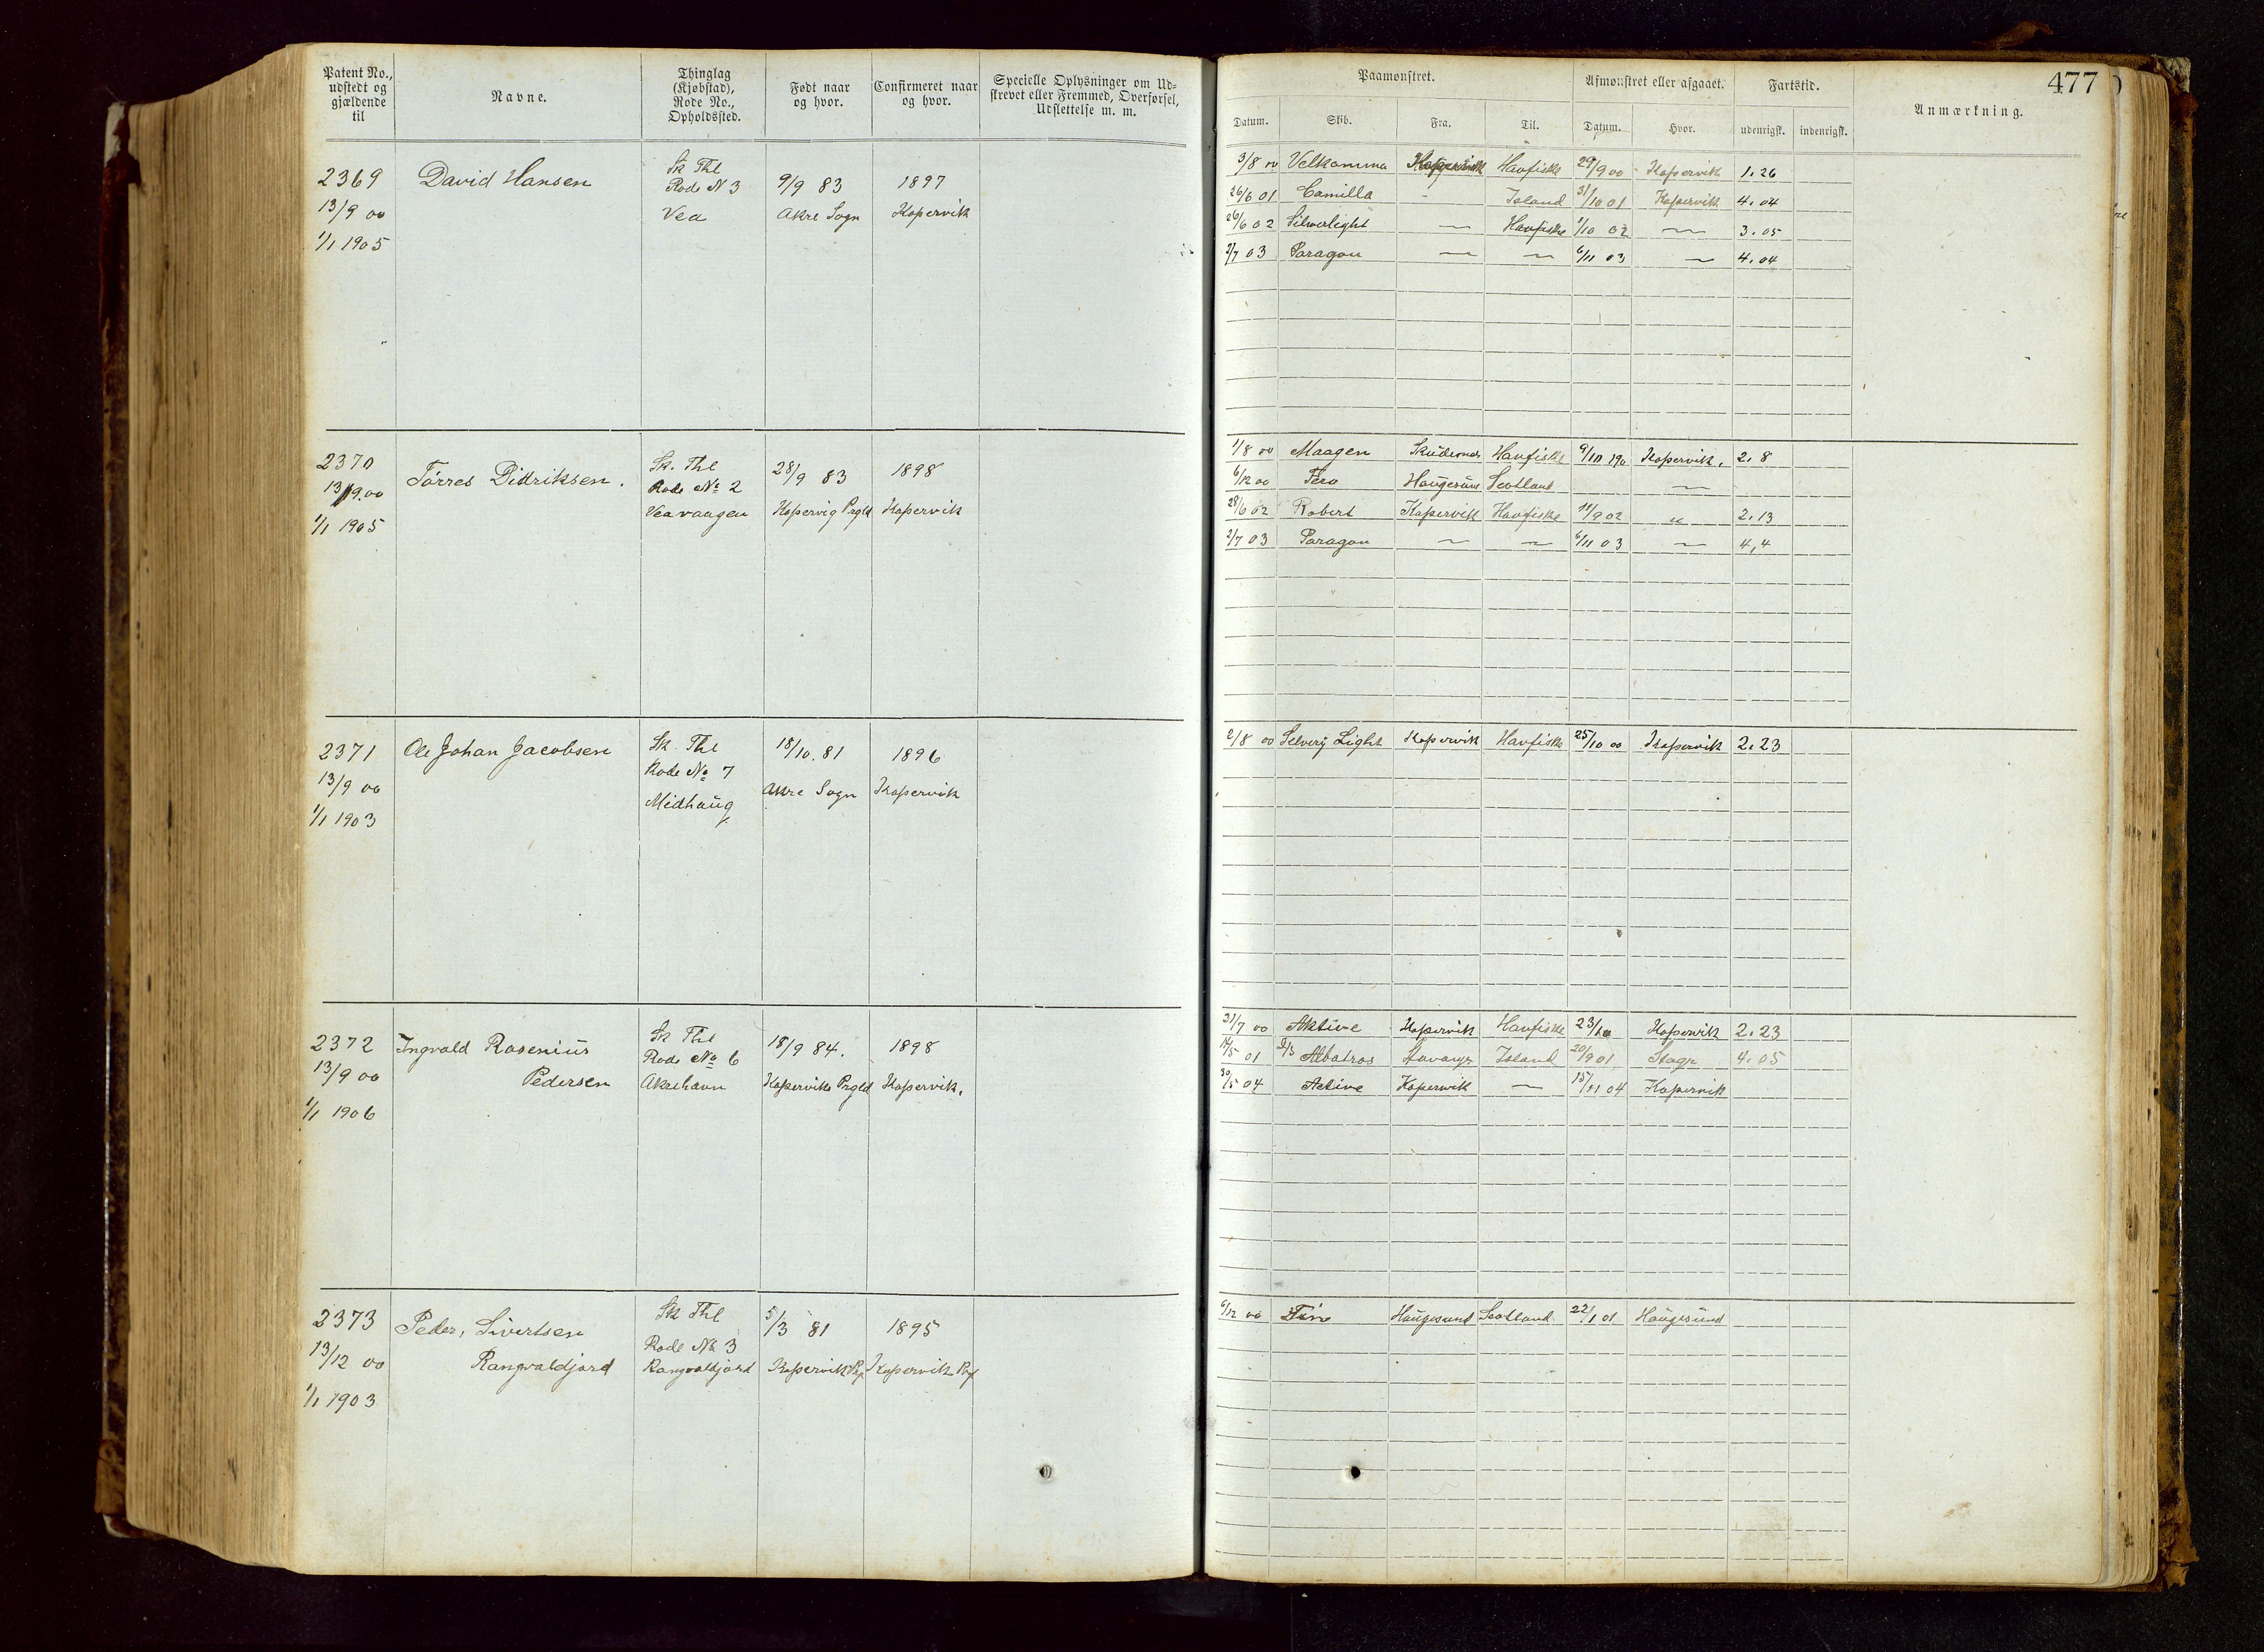 477
Patent No., udstedt og gjældende til
Navne.
Thinglag (Kjøbstad), Rode No., Opholdssted.
Født naar og hvor.
Confirmeret naar og hvor.
Specielle Oplysninger om Udskrevet eller Fremmed, Overførsel, Udslettelse m. m.
Paamønstret.
Afmønstret eller afgaaet.
Fartstid.
Anmærkning.
Datum. Skib. Fra. Til. Datum. Hvor. udenrigsk. indenrigsk.
2369 David Hansen Sk Thl 9/9 83 1897
13/9 00 Rode N 3 Akre Sogn Kopervik
1/1 1905 Vea
3/8 00 Velkommen Kopervik Havfiske 29/9 00 Kopervik 1.26
26/6 01 Camilla - Island 31/10 01 Kopervik 4.04
26/6 02 Silverlight — Havfiske 1/10 02 — 3.05
2/7 03 Paragon — — 6/11 03 — 4.04
2370 Törres Didriksen. Sk. Thl 28/9 83 1898
13/9.00 Rode No 2 Kopervig Prgld Kopervik
1/1 1905 Veavaagen
1/8 00 Maagen Skudesnes Havfiske 9/10 190 Kopervik. 2.8
6/12 00 Haugesund Scotland —
28/6 02 Robert Kopervik Havfiske 11/9 02 " 2.13
2/7 03 Paragon — — 6/11 03 — 4,4
2371 Ole Johan Jacobsen Sk. Thl 18/10.81 1896
13/9 00 Rode No 7 Akre Sogn Kopervik
1/1 1903 Midhaug
2/8 00 Selvery Light Kopervik Havfiske 25/10 00 Kopervik 2.23
2372 Ingvald Rosenius Sk Thl 18/9 84. 1898
13/9 00 Pedersen Rode No 6 Koperviks Prgld Kopervik.
1/1 1906 Akrehavn
31/7 00 Aktive Kopervik Havfiske 23/10 Kopervik 2.23
14/5 01 Albatros Stavanger Island 20/9 01 4.05
30/5 04 Active Kopervik — 15/11 04 Kopervik
2373 Peder, Sivertsen Sk Thl 5/3 81 1895
13/12 00 Rangvaldjord Rode No 3 Kopervik Prg Kopervik Prg
1/1 1903 Rangvaldjord
6/12 00 Haugesund Scotland 22/1 01 Haugesund